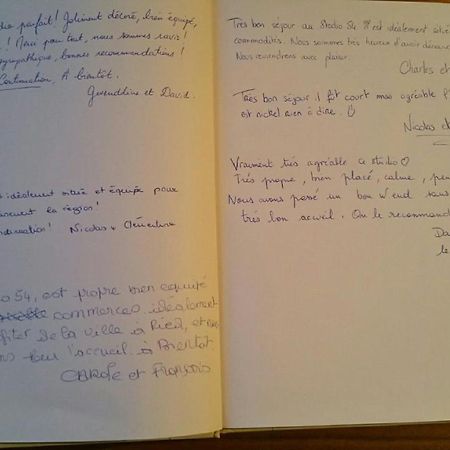 parfait! Joliment décoré, bien équipé,
! Merci pour tout, nous sommes ravis!
sympathique, bonnes recommandations!
Continuation, A bientôt.
et David.
idéalement situé et équipé pour
la région!
Nicolas & Clémentine
54, est propre bien equipé
commerces idéalement
de la ville à Pied, et
l'accueil. à Bientot.
CAROLE et François
Très bon séjour au Studio 54. Il est idéalement situé
commodités. Nous sommes très heureux d'avoir
Nous reviendrons avec plaisir.
Charles et
Très bon séjour! fut court mais agréable!
est nickel rien à dire.
Nicolas et
Vraiment très agréable ce studio ♡
Très propre, bien placé, calme,
Nous avons passé un bon W'end
très bon accueil. On le recommand
Da
le